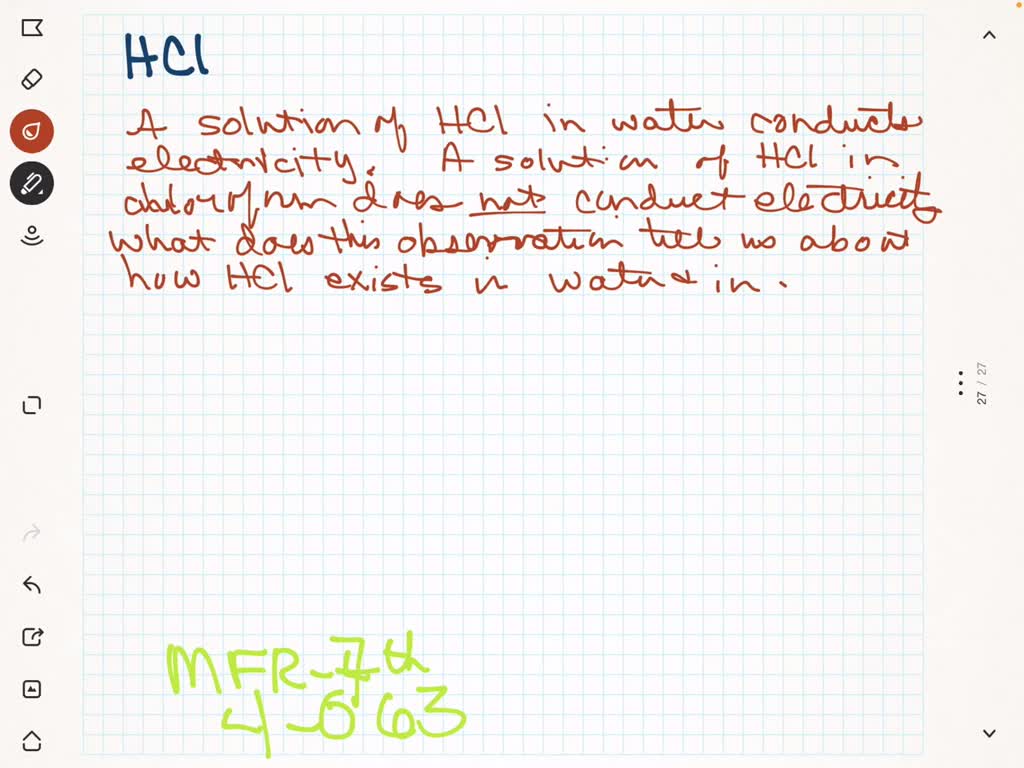 HCl
A solution of HCl in water conducts
electricity. A solution of HCl in
does not conduct electricity
What does this observation tell us about
how HCl exists in water & in.
27 / 27
MFR-7th
4-063